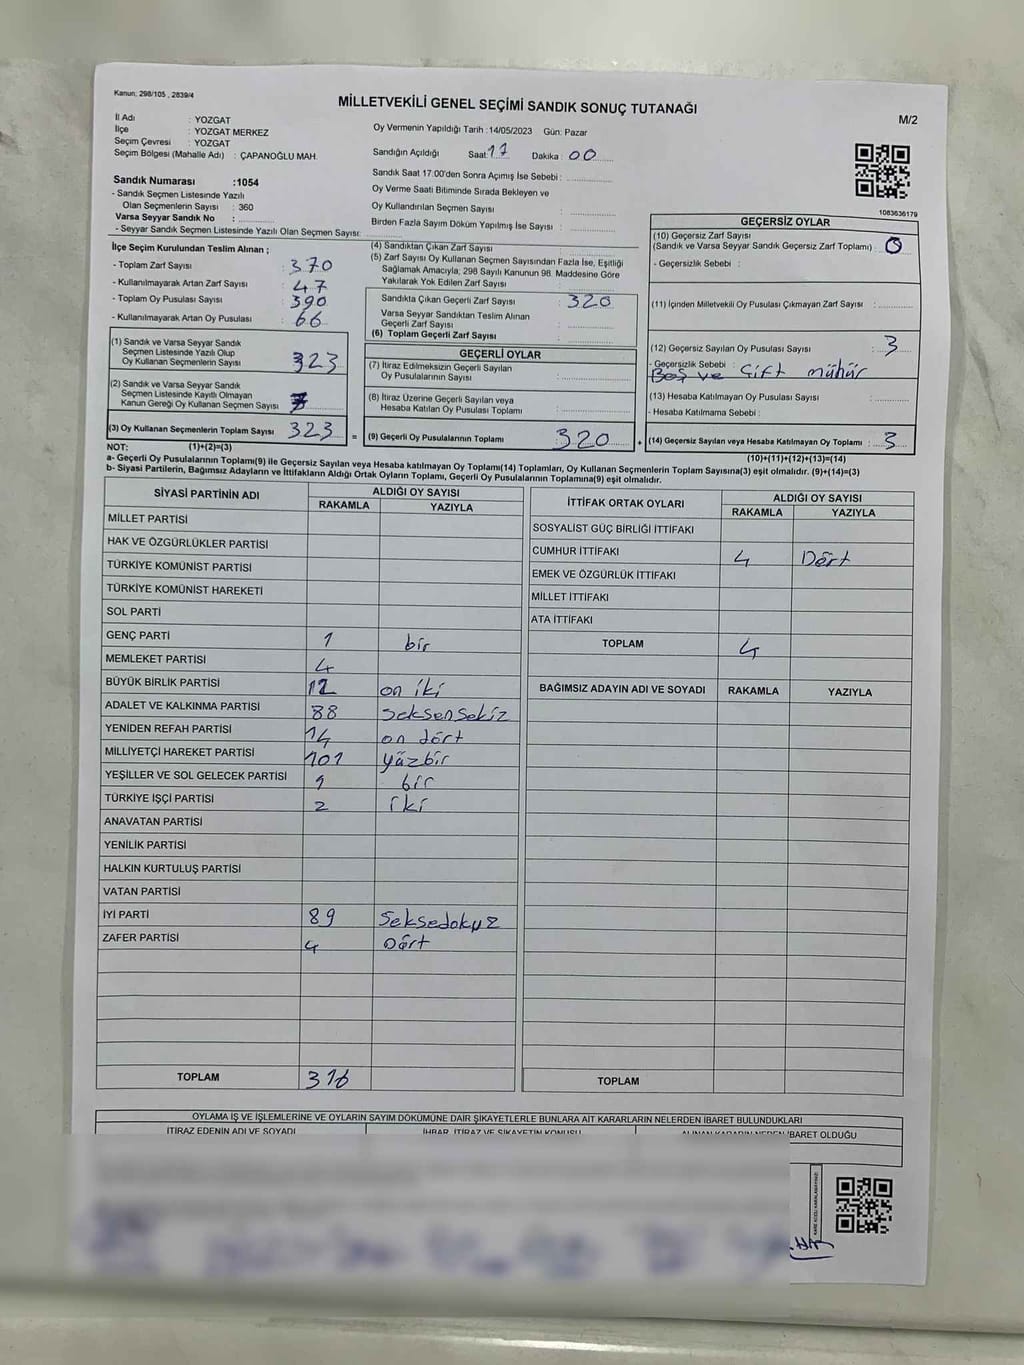 Kanun: 298/105 , 2839/4
MİLLETVEKİLİ GENEL SEÇİMİ SANDIK SONUÇ TUTANAĞI
M/2
İl Adı : YOZGAT
İlçe : YOZGAT MERKEZ
Seçim Çevresi : YOZGAT
Seçim Bölgesi (Mahalle Adı) : ÇAPANOĞLU MAH.
Oy Vermenin Yapıldığı Tarih :14/05/2023 Gün: Pazar
Sandığın Açıldığı Saat: 17 Dakika : 00
Sandık Saat 17:00'den Sonra Açımış İse Sebebi :
Oy Verme Saati Bitiminde Sırada Bekleyen ve
Oy Kullandırılan Seçmen Sayısı :
Birden Fazla Sayım Döküm Yapılmış İse Sayısı :
Sandık Numarası :1054
- Sandık Seçmen Listesinde Yazılı
Olan Seçmenlerin Sayısı : 360
Varsa Seyyar Sandık No :
- Seyyar Sandık Seçmen Listesinde Yazılı Olan Seçmen Sayısı:
1083636179
İlçe Seçim Kurulundan Teslim Alınan ;
- Toplam Zarf Sayısı : 370
- Kullanılmayarak Artan Zarf Sayısı : 47
- Toplam Oy Pusulası Sayısı : 390
- Kullanılmayarak Artan Oy Pusulası : 66
(1) Sandık ve Varsa Seyyar Sandık
Seçmen Listesinde Yazılı Olup
Oy Kullanan Seçmenlerin Sayısı 323
(2) Sandık ve Varsa Seyyar Sandık
Seçmen Listesinde Kayıtlı Olmayan
Kanun Gereği Oy Kullanan Seçmen Sayısı
(3) Oy Kullanan Seçmenlerin Toplam Sayısı 323 =
(4) Sandıktan Çıkan Zarf Sayısı :
(5) Zarf Sayısı Oy Kullanan Seçmen Sayısından Fazla İse, Eşitliği
Sağlamak Amacıyla; 298 Sayılı Kanunun 98. Maddesine Göre
Yakılarak Yok Edilen Zarf Sayısı :
Sandıkta Çıkan Geçerli Zarf Sayısı : 320
Varsa Seyyar Sandıktan Teslim Alınan
Geçerli Zarf Sayısı :
(6) Toplam Geçerli Zarf Sayısı :
GEÇERLİ OYLAR
(7) İtiraz Edilmeksizin Geçerli Sayılan
Oy Pusulalarının Sayısı :
(8) İtiraz Üzerine Geçerli Sayılan veya
Hesaba Katılan Oy Pusulası Toplamı :
(9) Geçerli Oy Pusulalarının Toplamı : 320 +
GEÇERSİZ OYLAR
(10) Geçersiz Zarf Sayısı
(Sandık ve Varsa Seyyar Sandık Geçersiz Zarf Toplamı) : 0
- Geçersizlik Sebebi :
(11) İçinden Milletvekili Oy Pusulası Çıkmayan Zarf Sayısı :
(12) Geçersiz Sayılan Oy Pusulası Sayısı : 3
- Geçersizlik Sebebi :
Boş ve Çift mühür
(13) Hesaba Katılmayan Oy Pusulası Sayısı :
- Hesaba Katılmama Sebebi :
(14) Geçersiz Sayılan veya Hesaba Katılmayan Oy Toplamı : 3
NOT: (1)+(2)=(3)
(10)+(11)+(12)+(13)=(14)
a- Geçerli Oy Pusulalarının Toplamı(9) ile Geçersiz Sayılan veya Hesaba katılmayan Oy Toplamı(14) Toplamları, Oy Kullanan Seçmenlerin Toplam Sayısına(3) eşit olmalıdır. (9)+(14)=(3)
b- Siyasi Partilerin, Bağımsız Adayların ve İttifakların Aldığı Ortak Oyların Toplamı, Geçerli Oy Pusulalarının Toplamına(9) eşit olmalıdır.
SİYASİ PARTİNİN ADI
ALDIĞI OY SAYISI
RAKAMLA YAZIYLA
MİLLET PARTİSİ
HAK VE ÖZGÜRLÜKLER PARTİSİ
TÜRKİYE KOMÜNİST PARTİSİ
TÜRKİYE KOMÜNİST HAREKETİ
SOL PARTİ
GENÇ PARTİ 1 bir
MEMLEKET PARTİSİ 4
BÜYÜK BİRLİK PARTİSİ 12 on iki
ADALET VE KALKINMA PARTİSİ 88 Seksensekiz
YENİDEN REFAH PARTİSİ 14 on dört
MİLLİYETÇİ HAREKET PARTİSİ 101 yüzbir
YEŞİLLER VE SOL GELECEK PARTİSİ 1 bir
TÜRKİYE İŞÇİ PARTİSİ 2 iki
ANAVATAN PARTİSİ
YENİLİK PARTİSİ
HALKIN KURTULUŞ PARTİSİ
VATAN PARTİSİ
İYİ PARTİ 89 Seksedokuz
ZAFER PARTİSİ 4 Dört
TOPLAM 316
İTTİFAK ORTAK OYLARI
ALDIĞI OY SAYISI
RAKAMLA YAZIYLA
SOSYALİST GÜÇ BİRLİĞİ İTTİFAKI
CUMHUR İTTİFAKI 4 Dört
EMEK VE ÖZGÜRLÜK İTTİFAKI
MİLLET İTTİFAKI
ATA İTTİFAKI
TOPLAM 4
BAĞIMSIZ ADAYIN ADI VE SOYADI RAKAMLA YAZIYLA
TOPLAM
OYLAMA İŞ VE İŞLEMLERİNE VE OYLARIN SAYIM DÖKÜMÜNE DAİR ŞİKAYETLERLE BUNLARA AİT KARARLARIN NELERDEN İBARET BULUNDUKLARI
İTİRAZ EDENİN ADI VE SOYADI İHBAR, İTİRAZ VE ŞİKAYETİN KONUSU ALINAN KARARIN NEDEN İBARET OLDUĞU